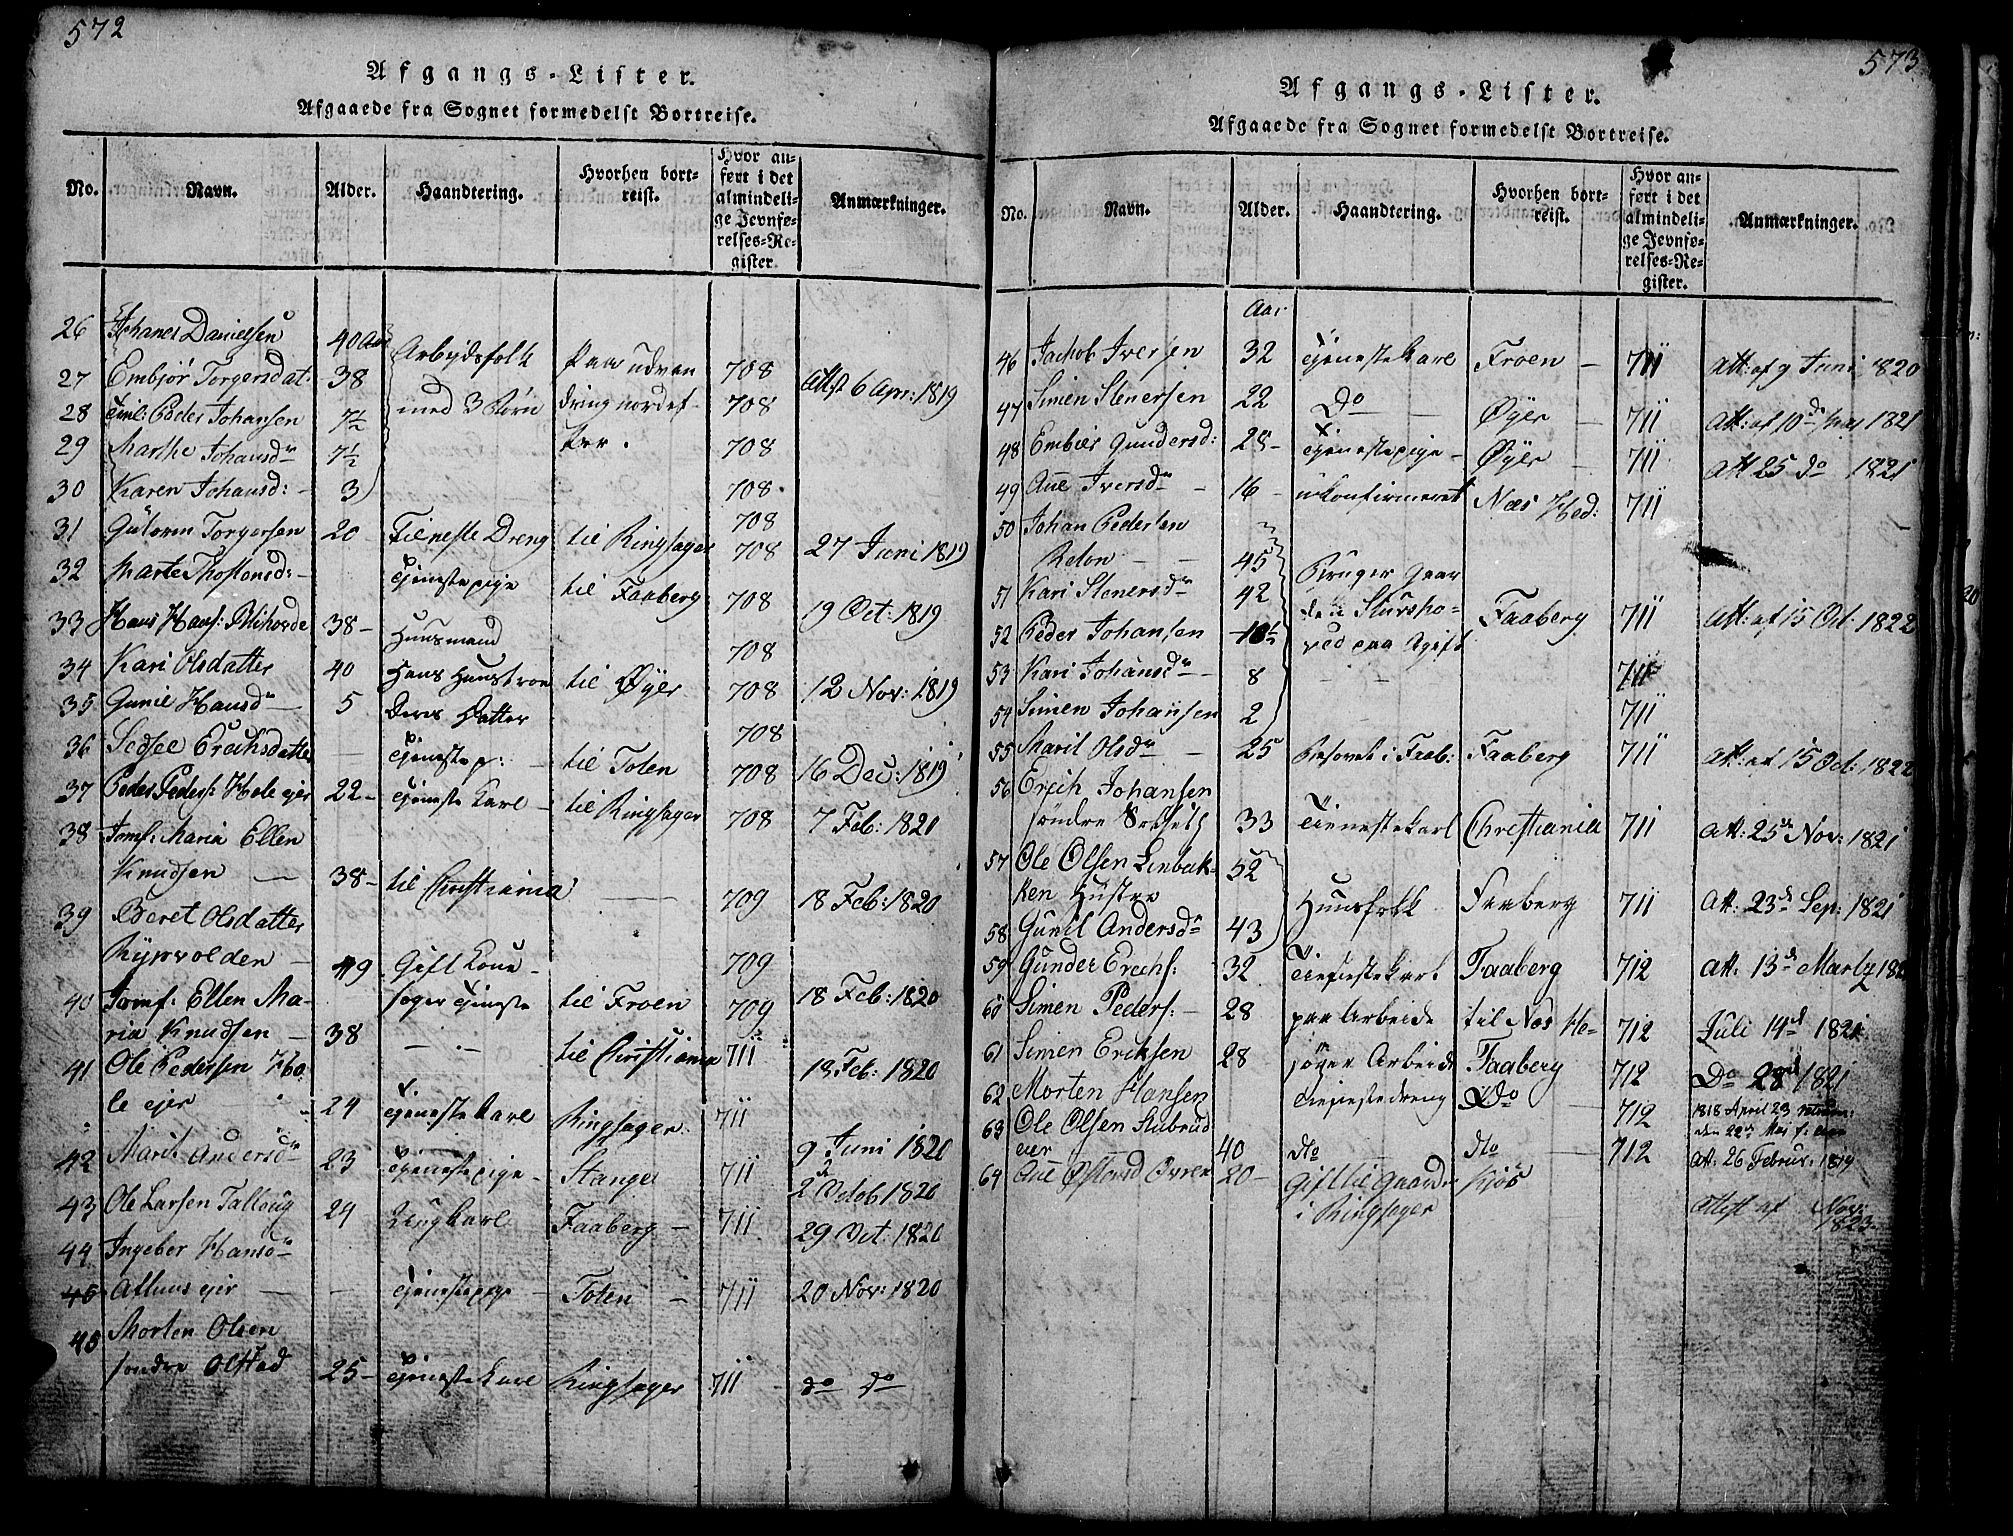 572
Afgangs-Lister.
Afgaaede fra Sognet formedelst Bortreise.
No. Navn. Alder. Haandtering. Hvorhen bortreist. Hvor anført i det almindelige Jevnførelses-Register. Anmærkninger.
26 Johanes Danielsen 40 Aar Arbejdsfolk paa udvan 708
27 Embjør Torgersdat: 38 med 3 Børn dring nordef 708 Att: 6 Apr: 1819
28 Peder Johansen 7½ 708
29 Marthe Johansdr 7½ 708
30 Karen Johansd: 3 708
31 Torgersen 20 Tieneste Dreng til Ringsager 708 27 Juni 1819
32 Marte Thostensd: Tjenestepige til Faaberg 708 19 Oct: 1819
33 Hans Hans: 38 Huusmand 708
34 Kari Olsdatter 40 Hans Huustroe til Øyer 708 12 Nov: 1819
35 Gunil Hansdr 5 Deres Datter 708
36 Erichsdatter Tjenestep: til Toten 708 16 Dec: 1819
37 Peder Peders: Hole ejer 22 Tjeneste Karl til Ringsager 708 7 Feb: 1820
38 Jomf: Maria Ellen
Knudsen 38 til Christiania 709 18 Feb: 1820
39 Beret Olsdatter
49 Gift Kone 709
40 Jomf: Ellen Ma- søger Tjeneste til Froen 709 18 Feb: 1820
ria Knudsen 38 til Christiania 711
41 Ole Pedersen Ho- 18 Feb: 1820
le ejer 24 Tjenestekarl Ringsager 711
42 Marit Andersdr 23 Tjenestepige Stange 711 9 Juni 1820
43 Ole Larsen 24 Ungkarl Faaberg 711 2 Octob 1820
29 Oct: 1820
44 Ingeber Hansdr
45 ejer Tjenestepige Toten 711 20 Nov: 1820
45 Morten Olsen
søndre Olstad 25 Tjeneste Karl Ringsager 711 do do
573
Afgangs-Lister.
Afgaaede fra Sognet formedelst Bortreise.
No. Navn. Alder. Haandtering. Hvorhen bortreist. Hvor anført i det almindelige Jevnførelses-Register. Anmærkninger.
Aar
46 Jachob Iversen 32 Tjenestekarl Froen 711 Att: af 9 Juni 1820
47 Simen Stenersen 22 Do Øyer 711 Att: af 10de Mai 1821
48 Embier Gundersd: 28 Tjenestepige Øyer 711 Att 25 do 1821
49 Ane Iversdr 16 ukonfirmeret Næs Hed: 711
50 Johan Pedersen
45 Bruger Gaar
51 Kari Stenersdr 42 den Faaberg 711 Att: af 15 Oct: 1822
52 Peder Johansen 10½
53 Kari Johansdr 8 711
54 Simen Johansen 2 711
55 Marit Olsdr 25 i Faab: Faaberg 711 Att: af 15 Oct: 1822
56 Erich Johansen
søndre 33 Tienestekarl Christiania 711 Att: 25de Nov: 1821
57 Ole Olsen Linbak-
ken 52 Huusfolk Faaberg 711 Att: 23de Sep: 1821
58 Gunil Andersdr 43
59 Gunder Erichs: 32 Tienestekarl Faaberg 712 Att: 13de Marty
60 Simen Peders: 28 paa Arbeide til Næs He- 712 Juli 14de 1821
61 Simen Eriksen 28 søger Arbeide Faaberg 712 Do 28 1821
62 Morten Hansen Tienestedreng Do 712 1818 April 23
63 Ole Olsen den 22de Mai
eier 40 do do 712 Att: 26 Februr: 1819
64 Ane 20 Gift til Gaard Attest af Nov:
i Ringsager 1823